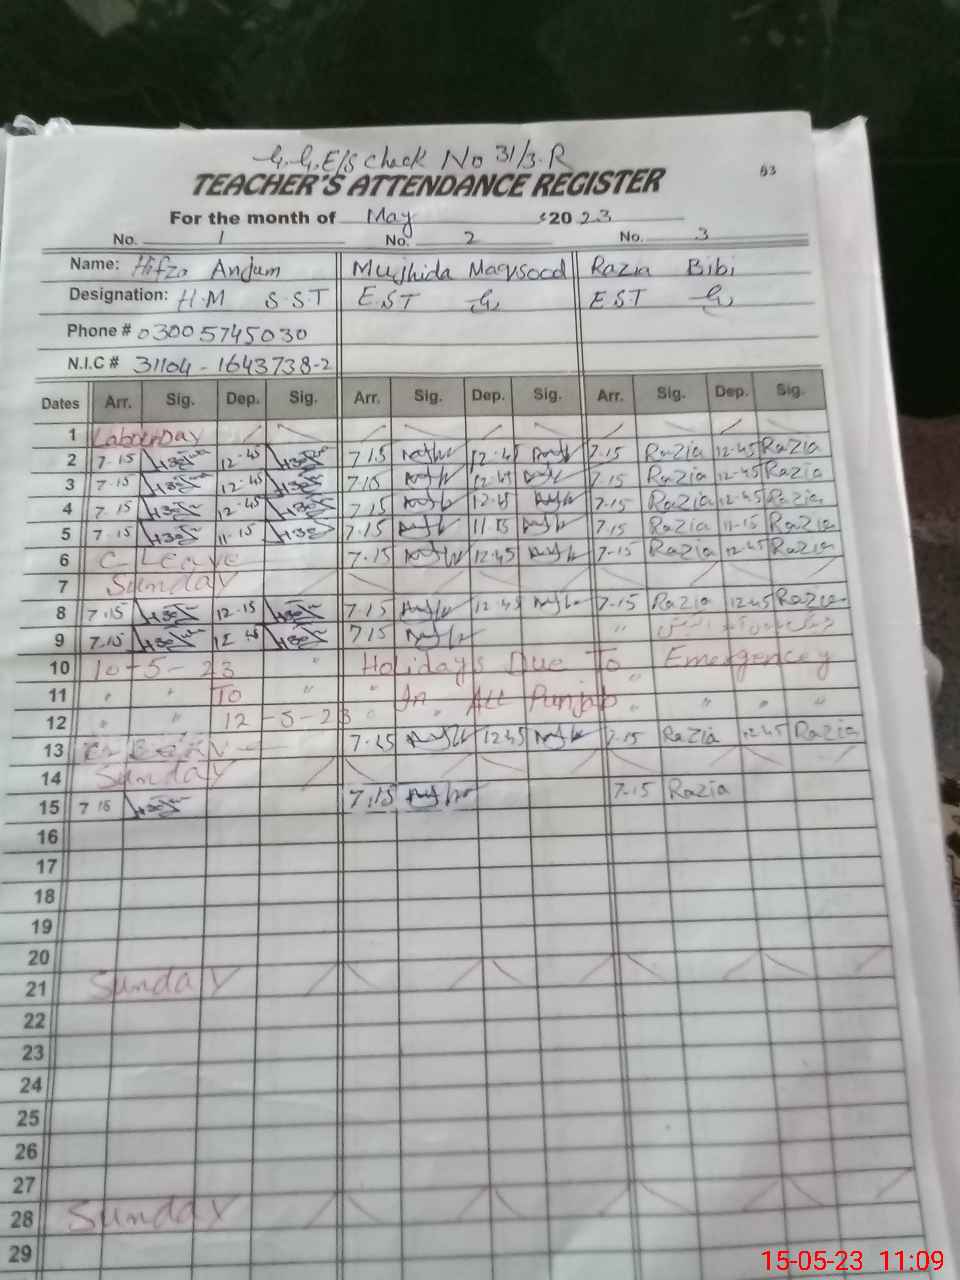 G.G.E/S Chack No 31/3.R
TEACHER'S ATTENDANCE REGISTER
For the month of May 2023
No. 1 No. 2 No. 3
Name: Hifza Anjum Mujhida Maqsood Razia Bibi
Designation: H.M S.S.T E.S.T G E.S.T G
Phone # 03005745030
N.I.C # 31104-1643738-2
Dates Arr. Sig. Dep. Sig. Arr. Sig. Dep. Sig. Arr. Sig. Dep. Sig.
1 Labour Day
2 7.15 12.45 7.15 12.45 7.15 Razia 12.45 Razia
3 7.15 12.45 7.15 12.45 7.15 Razia 12.45 Razia
4 7.15 12.45 7.15 12.45 7.15 Razia 12.45 Razia
5 7.15 11.15 7.15 11.15 7.15 Razia 11.15 Razia
6 C Leave 7.15 12.45 7.15 Razia 12.45 Razia
7 Sunday
8 7.15 12.15 7.15 12.45 7.15 Razia 12.45 Razia
9 7.15 12.45 7.15 "
10 10-5-23 " Holidays Due To Emergencey
11 " " TO " " In All Punjab " " " "
12 " " 12-5-23 " "
13 7.15 12.45 7.15 Razia 12.45 Razia
14 Sunday
15 7.15 7.15 7.15 Razia
16
17
18
19
20
21 Sunday
22
23
24
25
26
27
28 Sunday
29
15-05-23 11:09